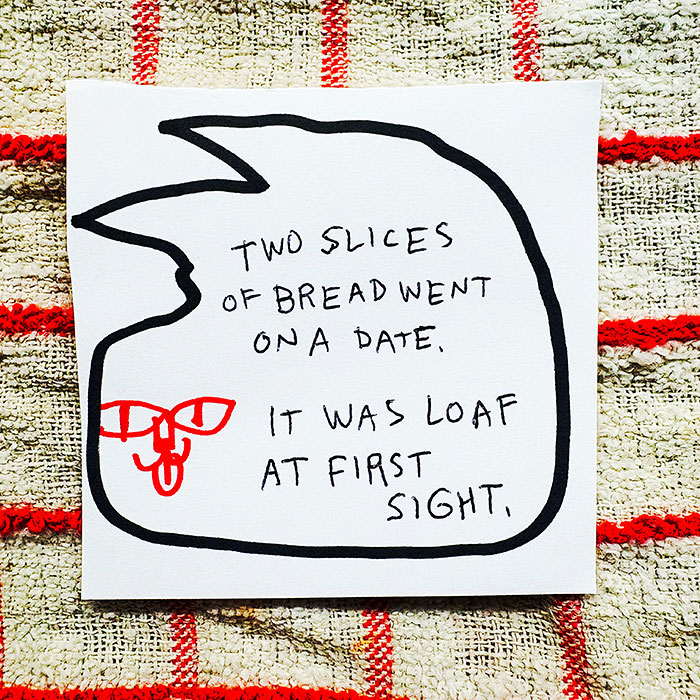 TWO SLICES
OF BREAD WENT
ON A DATE.
IT WAS LOAF
AT FIRST
SIGHT.